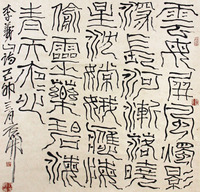 雲母屏風燭影
深長河漸落曉
星沈嫦娥應悔
偷靈藥碧海
青天夜〻心
李義山詩己卯三月